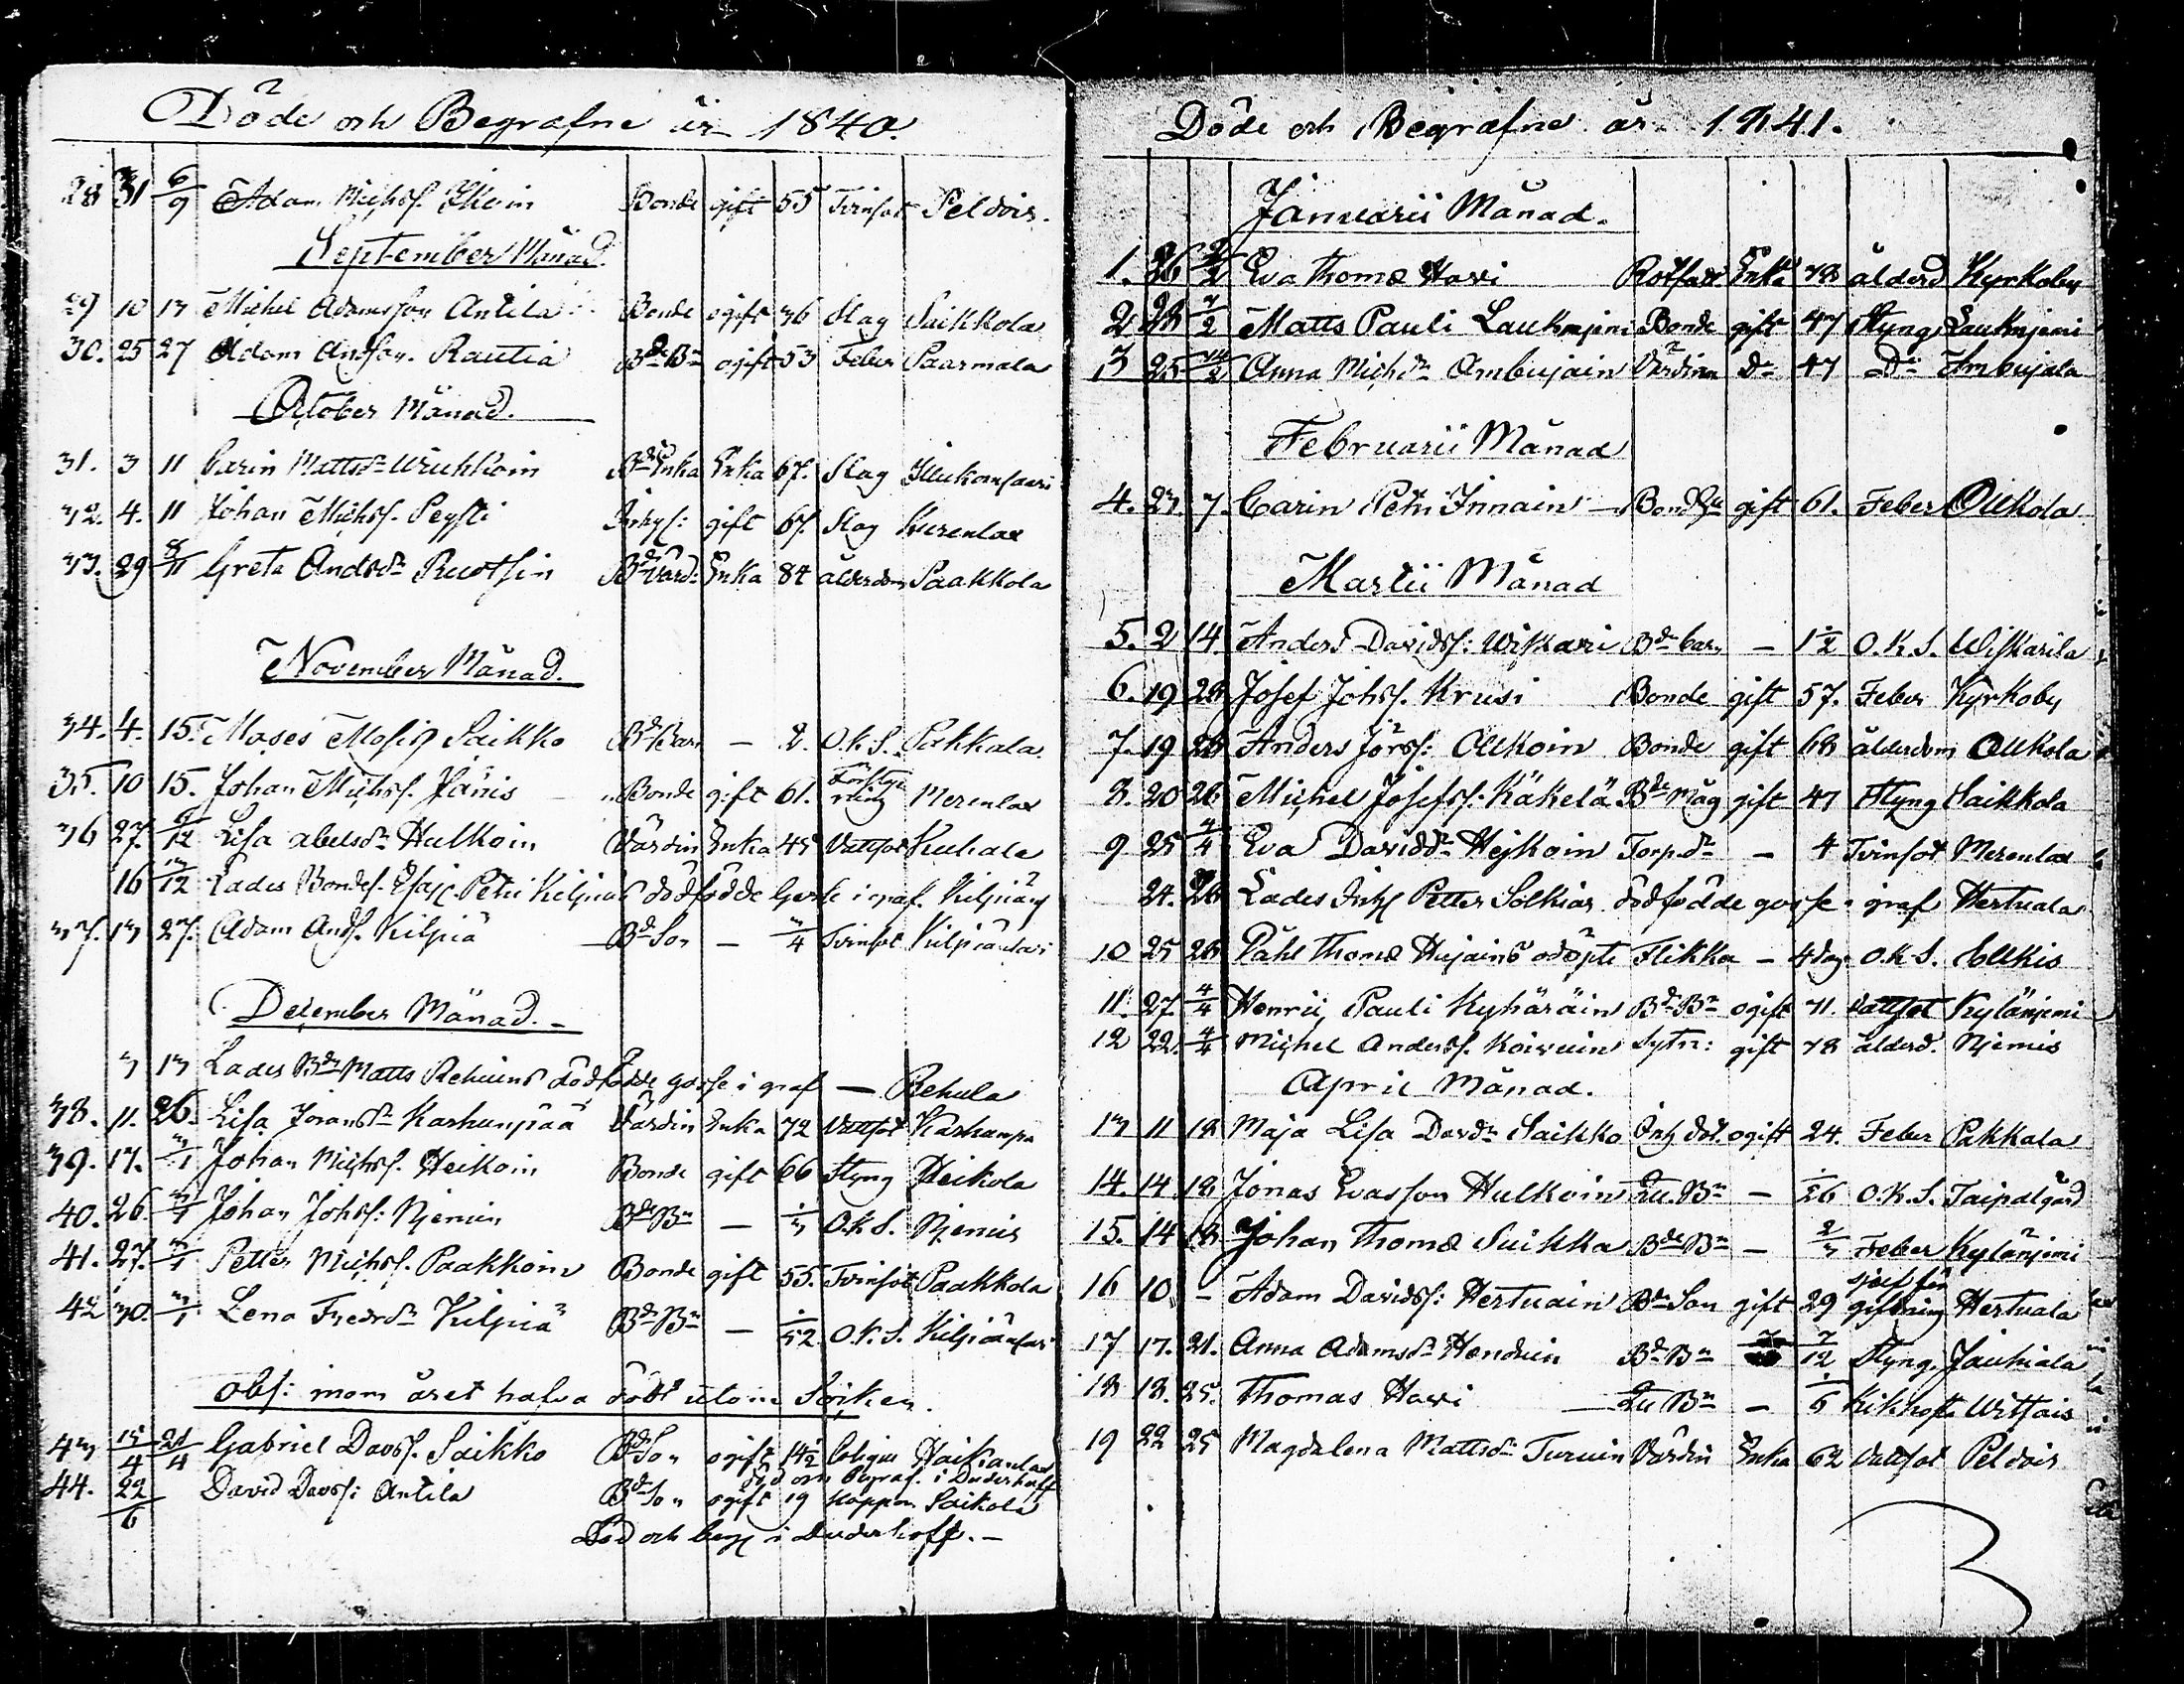 Döde och Begrafne år 1840.
28 31 6/9 Adam Michss. Ikoin Bonde gift 55 Tvinsot Peldois.
September Månad.
29 10 13 Michel Adamsson Antila Bonde ogift 36 Slag Saikkola
30. 25 27 Adam Andson. Rautia Bde Bn ogift 53 Feber Saarmala
October Månad.
31. 3 11 Carin Mattsdr Bde Enka Enka 67. Slag
32. 4. 11 Johan Michss. Peysti Inhys: gift 67. Slag Kurenlax
33. 29 8/11 Greta Andsdr Ruotsin Bde Värd: Enka 84 ålderdom Paakkola
November Månad.
34. 4. 15. Moses Mosis Saikko Bde Barn — 2. O.k.S. Pakkala.
35. 10 15. Johan Michss. Jänis Bonde gift 61. Förstyrning Merenlax
36 27. 6/12 Lisa Abelsdr Hulkoin Värdin Enka 45 Vattsot Kuhala
16 13/12 Lades Bondes. Petri Kilpiäs dödfödde Gosse i graf.
37. 13 27. Adam Ands. Kilpiä Bde Son — 3/4 Tvinsot Kilpiänsari
December Månad. —
3 13 Lades Bdn Matts Rehuins dödfödde gosse i graf — Rehula
38. 11. 26. Lisa Joransdr Karhunpää Värdin Enka 72 Vattsot Karhunpä
39. 17. 3/1 Johan Michss. Heikoin Bonde gift 66 Styng Heikola
40. 26. 3/1 Johan Johss: Njemin Bde Bn — 1/3 O.k.S. Njemis
41. 27. 3/1 Petter Michss. Paakkoin Bonde gift 55. Tvinsot Paakkola
42 30. 3/1 Lena Fredrdr Kilpiä Bde Bn — 1/52 O.k.S. Kilpiänsari
obs: inom året hafva dödt utom Socken.
43 15/4 21/4 Gabriel Davss. Saikko Bde Son ogift 14 1/2 Colique Haikianlax
död och begraf. i Duderhoff
44. 22/6 David Davss: Antila Bde Son ogift 19 Koppor Saikola
Död och begr i Duderhoff. —
Döde och Begrafne år 1841.
Januarii Månad.
1. 26 2/2 Eva Thomæ Havi Enka 78 ålderd Kyrkoby
2 28 7/2 Matts Pauli Lauknjemi Bonde gift 47 Styng Lauknjemi
3 25 14/2 Anna Michdr Ambujain Värdinn Do 47 Do Ambujala
Februarii Månad
4. 23. 7. Carin Petri Innain — gift 61. Feber Ollkola
Martii Månad
5. 2 14. Anders Davidss: Wiskari Bde barn — 1 1/2 O.k.S. Wiskarila
6. 19 28 Josef Johss. Krusi Bonde gift 57. Feber Kyrkoby
7. 19 28 Anders Jörss: Ollkoin Bonde gift 68 ålderdom Ollkola
8. 20 26 Michel Josefss: Käkelä Bde Måg gift 47 Styng Saikkola
9 25 4/4 Eva Daviddr Hejkoin Torp.dr — 4 Tvinsot Merenlax
24. 28 Lades Inhs Petter Solkias dödfödde gosse i graf Hertuala
10 25 28 Påhl Thomæ Hujains odöpte Flikka — 4 dag O.k.S. Ellkis
11. 27. 4/4 Henric Pauli Kyhäräin Bde Bn ogift 71. Vattsot Kylänjemi
12 22. 4/4 Michel Anderss. Koivuin Sytn: gift 78 ålderd. Njemis
April Månad.
13 11 18 Maja Lisa Davdr Saikko Inh dot. ogift 24. Feber Pakkala
14. 14 18 Jonas Evasson Hulkoin Bn — 1/26 O.k.S. Taipalgård
15. 14 18 Johan Thomæ Suikka Bde Bn — 2/3 Feber Kylänjemi
16 10 — Adam Davidss: Hertuain Bde Son gift 29 sjelf förgiftning Hertuala
17 17. 21. Anna Adamsdr Henduin Bde Bn 7/12 Styng. Jauhiala
18 18. 25. Thomas Havi — Bn — 1/6 Kikhosta Wittais
19 22 25 Magdalena Mattsdr Turuin Värdin Enka 62 Vattsot Peldois